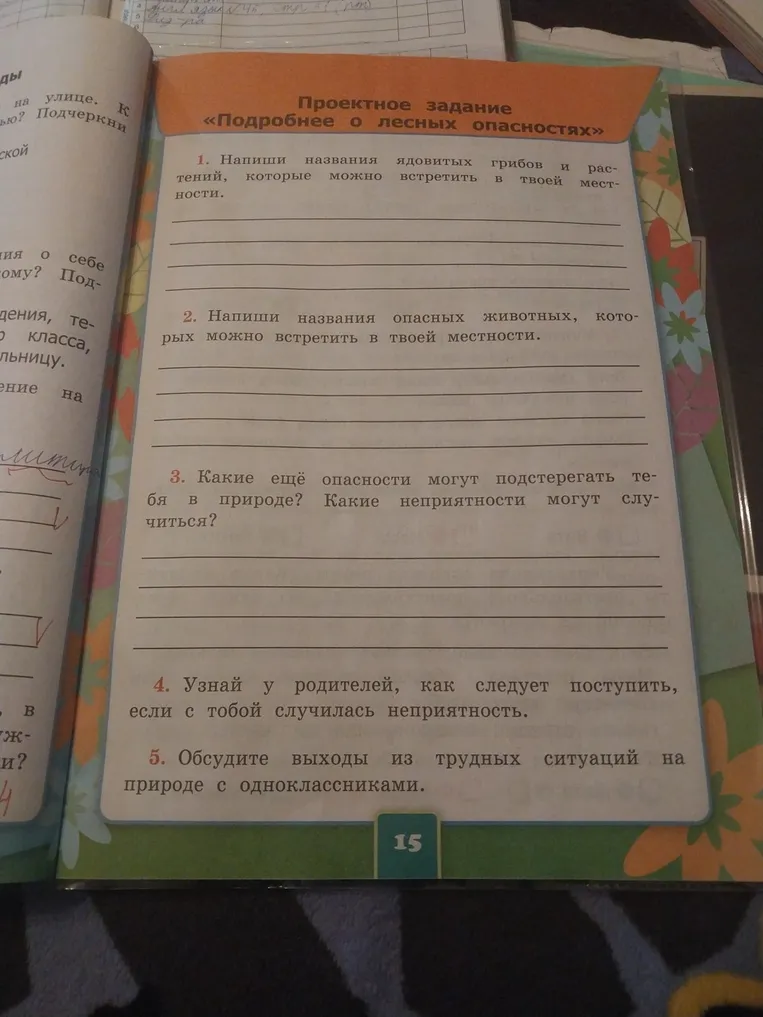 ды
на улице. К
ью? Подчеркни
ской
ния о себе
ому? Под-
дения, те-
р класса,
льницу.
ение на
, в
уж-
и?
4
Проектное задание
«Подробнее о лесных опасностях»
1. Напиши названия ядовитых грибов и рас-
тений, которые можно встретить в твоей мест-
ности.
2. Напиши названия опасных животных, кото-
рых можно встретить в твоей местности.
3. Какие ещё опасности могут подстерегать те-
бя в природе? Какие неприятности могут слу-
читься?
4. Узнай у родителей, как следует поступить,
если с тобой случилась неприятность.
5. Обсудите выходы из трудных ситуаций на
природе с одноклассниками.
15